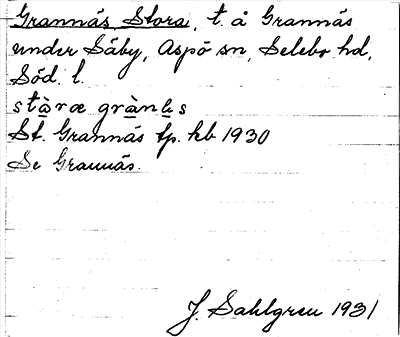 Grannäs Stora, t. å Grannäs
under Säby, Aspö sn, Selebo hd,
Söd. l.
stàræ grànẹs
St. Grannäs tp. kb 1930
Se Grannäs.
J. Sahlgren 1931